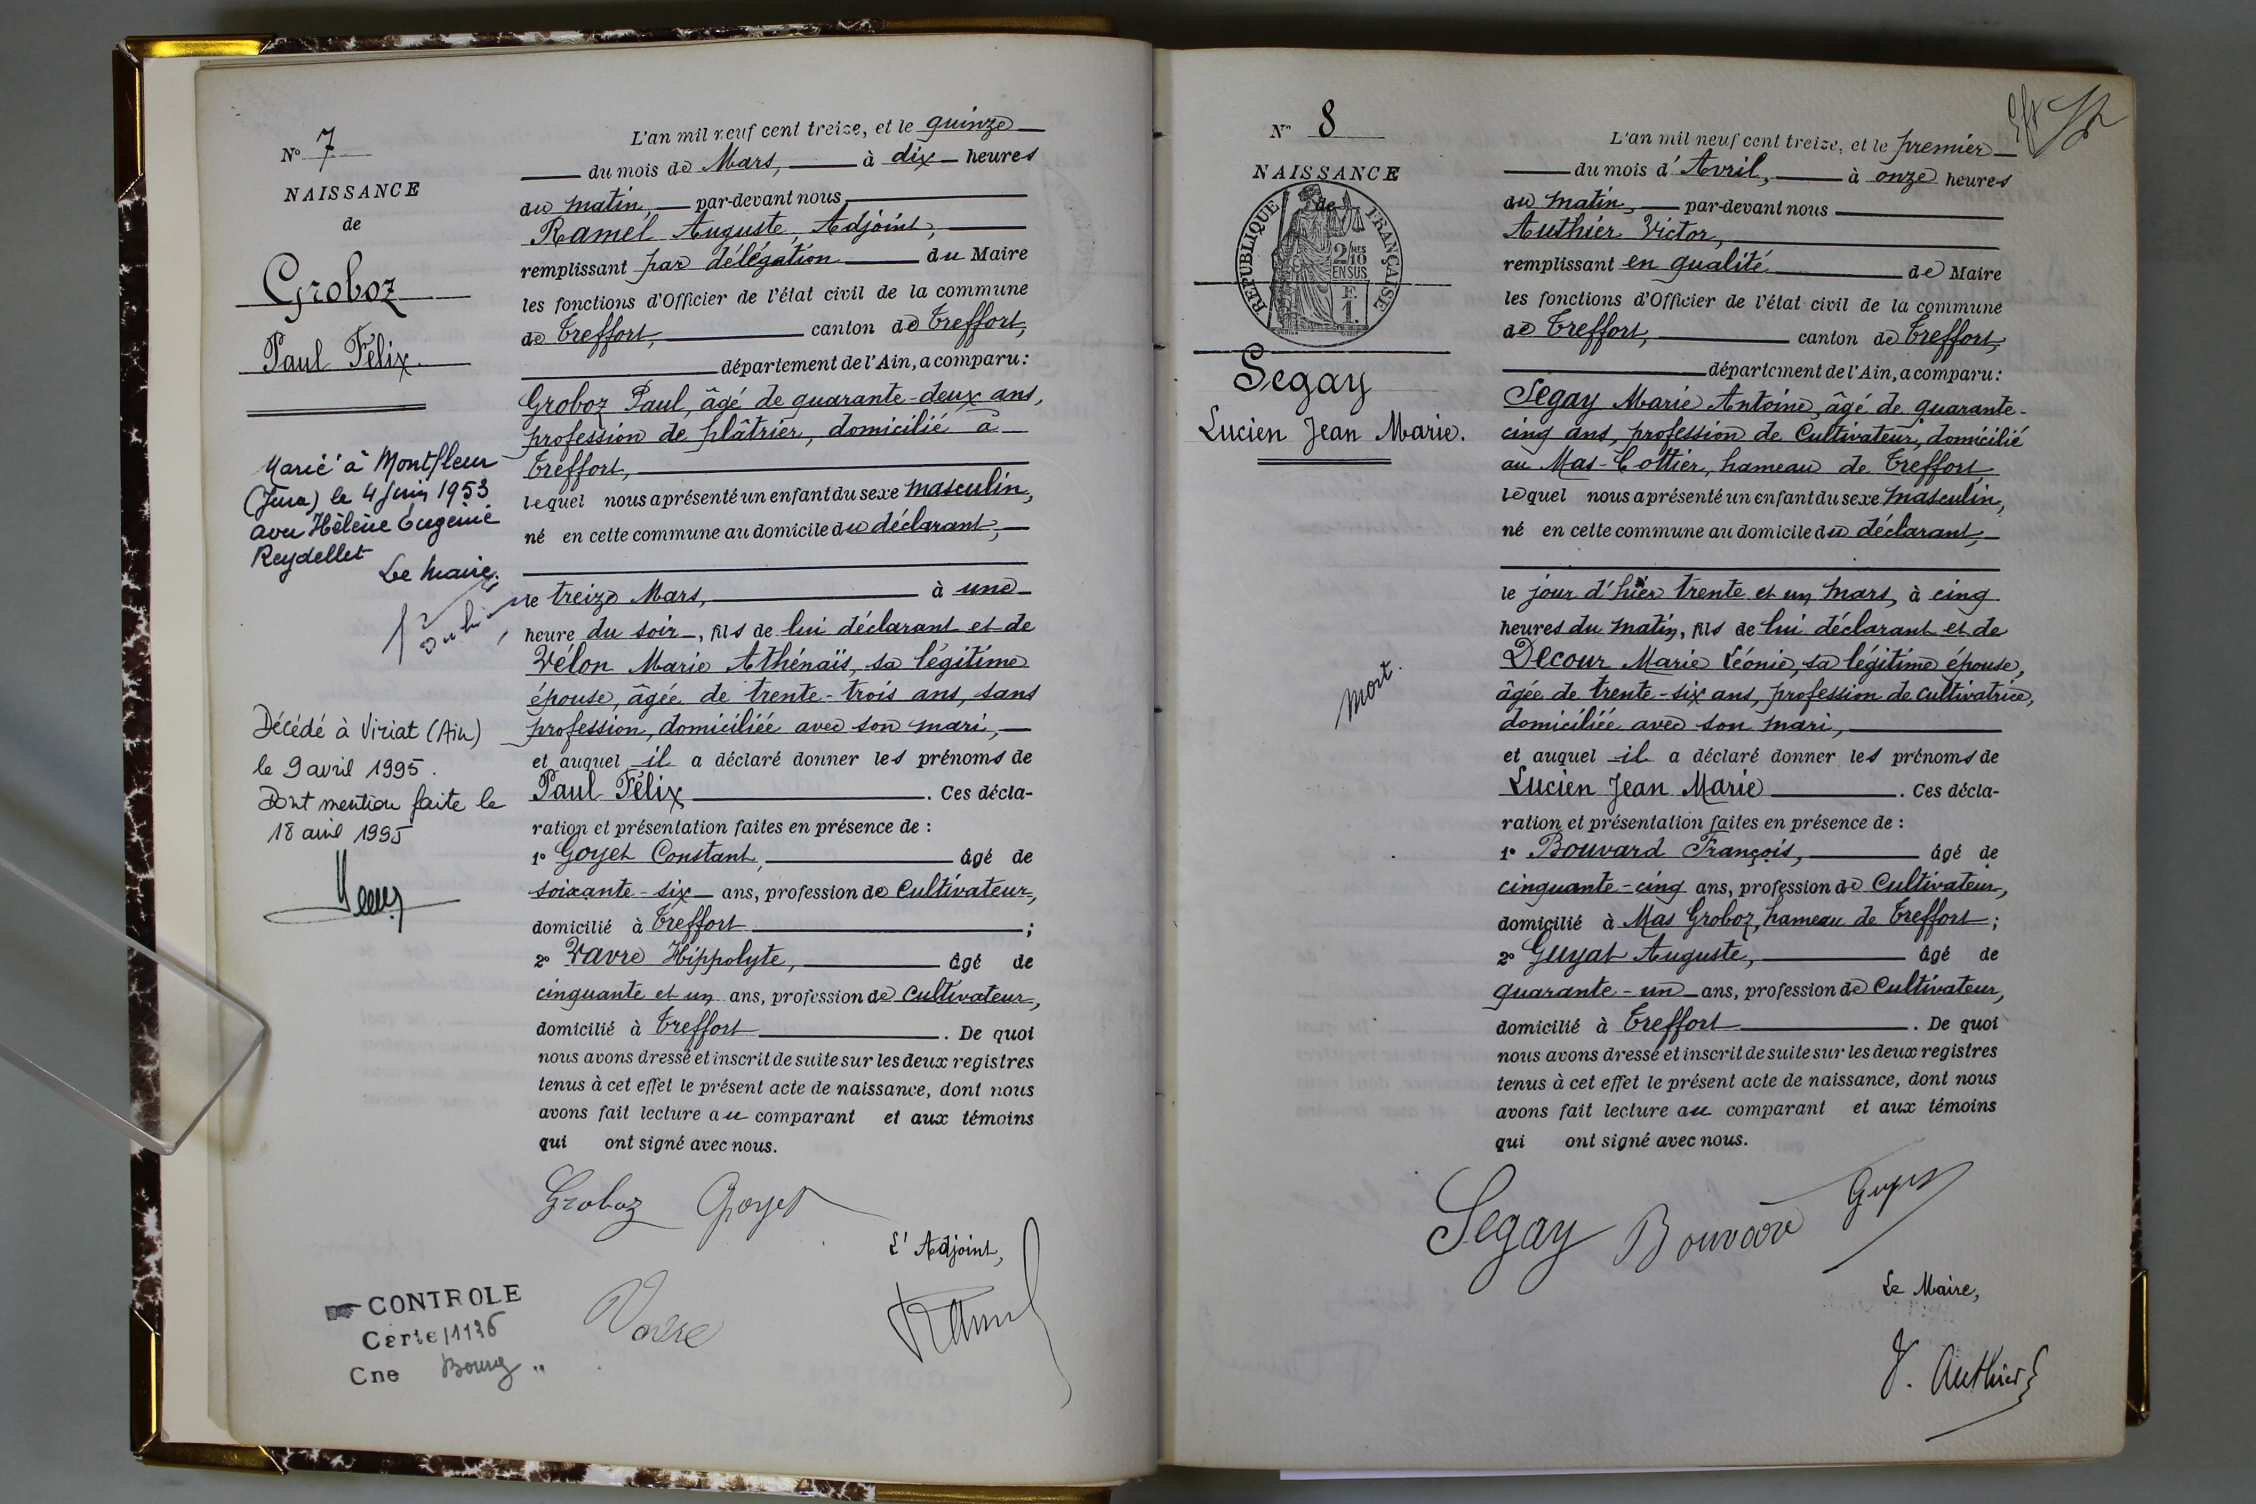 N° 7
NAISSANCE
de
Groboz
Paul Félix.
Marié à Montfleur
(Jura) le 4 Juin 1953
avec Hélène Eugénie
Reydellet
Le Maire.
Décédé à Viriat (Ain)
le 9 avril 1995.
Dont mention faite le
18 avril 1995
L'an mil neuf cent treize, et le quinze
du mois de Mars, à dix heures
du matin, par-devant nous
Ramel Auguste, Adjoint,
remplissant par délégation du Maire
les fonctions d'Officier de l'état civil de la commune
de Treffort, canton de Treffort,
département de l'Ain, a comparu :
Groboz Paul, âgé de quarante-deux ans,
profession de plâtrier, domicilié à
Treffort,
lequel nous a présenté un enfant du sexe masculin,
né en cette commune au domicile du déclarant,
le treize Mars, à une
heure du soir, fils de lui déclarant et de
Vélon Marie Athénaïs, sa légitime
épouse, âgée de trente-trois ans, sans
profession, domiciliée avec son mari,
et auquel il a déclaré donner les prénoms de
Paul Félix. Ces décla-
ration et présentation faites en présence de :
1° Goyet Constant, âgé de
soixante-six ans, profession de Cultivateur,
domicilié à Treffort ;
2° Vavre Hippolyte, âgé de
cinquante et un ans, profession de Cultivateur,
domicilié à Treffort. De quoi
nous avons dressé et inscrit de suite sur les deux registres
tenus à cet effet le présent acte de naissance, dont nous
avons fait lecture au comparant et aux témoins
qui ont signé avec nous.
Groboz Goyet
L'Adjoint,
Vavre Ramel
CONTROLE
Carte 1136
Cne Bourg
N° 8
NAISSANCE
de
RÉPUBLIQUE FRANÇAISE
2/10 EN SUS
1
Segay
Lucien Jean Marie.
Mort.
L'an mil neuf cent treize, et le premier
du mois d'Avril, à onze heures
du matin, par-devant nous
Authier Victor,
remplissant en qualité de Maire
les fonctions d'Officier de l'état civil de la commune
de Treffort, canton de Treffort,
département de l'Ain, a comparu :
Segay Marie Antoine, âgé de quarante-
cinq ans, profession de Cultivateur, domicilié
au Mas-Cottier, hameau de Treffort,
lequel nous a présenté un enfant du sexe masculin,
né en cette commune au domicile du déclarant,
le jour d'hier trente et un mars, à cinq
heures du matin, fils de lui déclarant et de
Decour Marie Léonie, sa légitime épouse,
âgée de trente-six ans, profession de cultivatrice,
domiciliée avec son mari,
et auquel il a déclaré donner les prénoms de
Lucien Jean Marie. Ces décla-
ration et présentation faites en présence de :
1° Bouvard François, âgé de
cinquante-cinq ans, profession de Cultivateur,
domicilié à Mas Groboz, hameau de Treffort ;
2° Guyat Auguste, âgé de
quarante-un ans, profession de Cultivateur,
domicilié à Treffort. De quoi
nous avons dressé et inscrit de suite sur les deux registres
tenus à cet effet le présent acte de naissance, dont nous
avons fait lecture au comparant et aux témoins
qui ont signé avec nous.
Segay Bouvard
Le Maire,
V. Authier